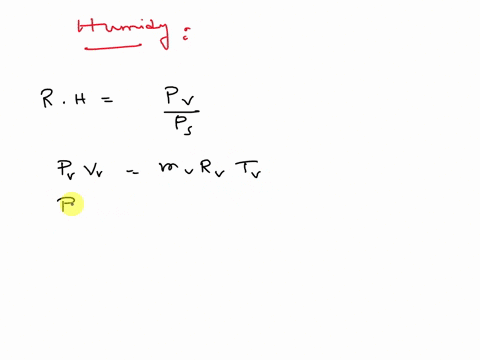 Humidy:
R.H = Pv / Ps
Pv Vv = mv Rv Tv
P